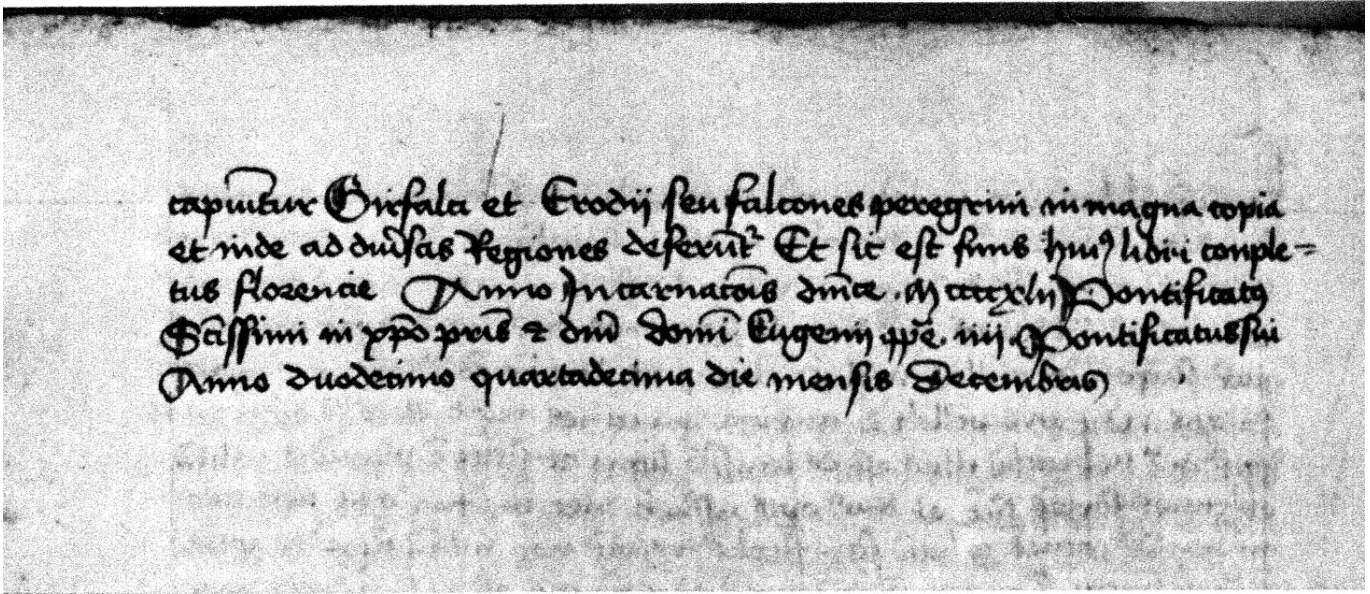 capiūtur Girfalci et Erodij seu falcones peregrini in magna copia
et inde ad diūsas Regiones deferūt᷑ Et sic est finis huiꝰ libri conple=
tus florencie Anno Incarnatōis dn̄ice . M ccccxlij Pontificatꝰ
Sc̄issimi in xp̄o pr̄is ⁊ dn̄i domī Eugenij pp̄e . iiij . Pontificatus sui
Anno duodecimo quartadecima die mensis Decembris